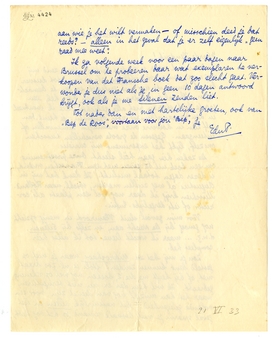 4424
aan wie je het wilt vermaken — of misschien deed je dat
reeds? — alleen in het geval dat je er zelf eigenlijk geen
raad mee weet.
Ik ga volgende week voor een paar dagen naar
Brussel om te probeeren daar wat exemplaren te ver-
koopen van dat Fransche boek dat zoo slecht gaat. Ver-
wonder je dus niet als je in geen 10 dagen antwoord
krijgt, ook als je me zenden liet.
Tot nader dan en met hartelijke groeten, ook van
Bep de Roos, voortaan voor jou "Bep", je
EdP.
21 VI 33